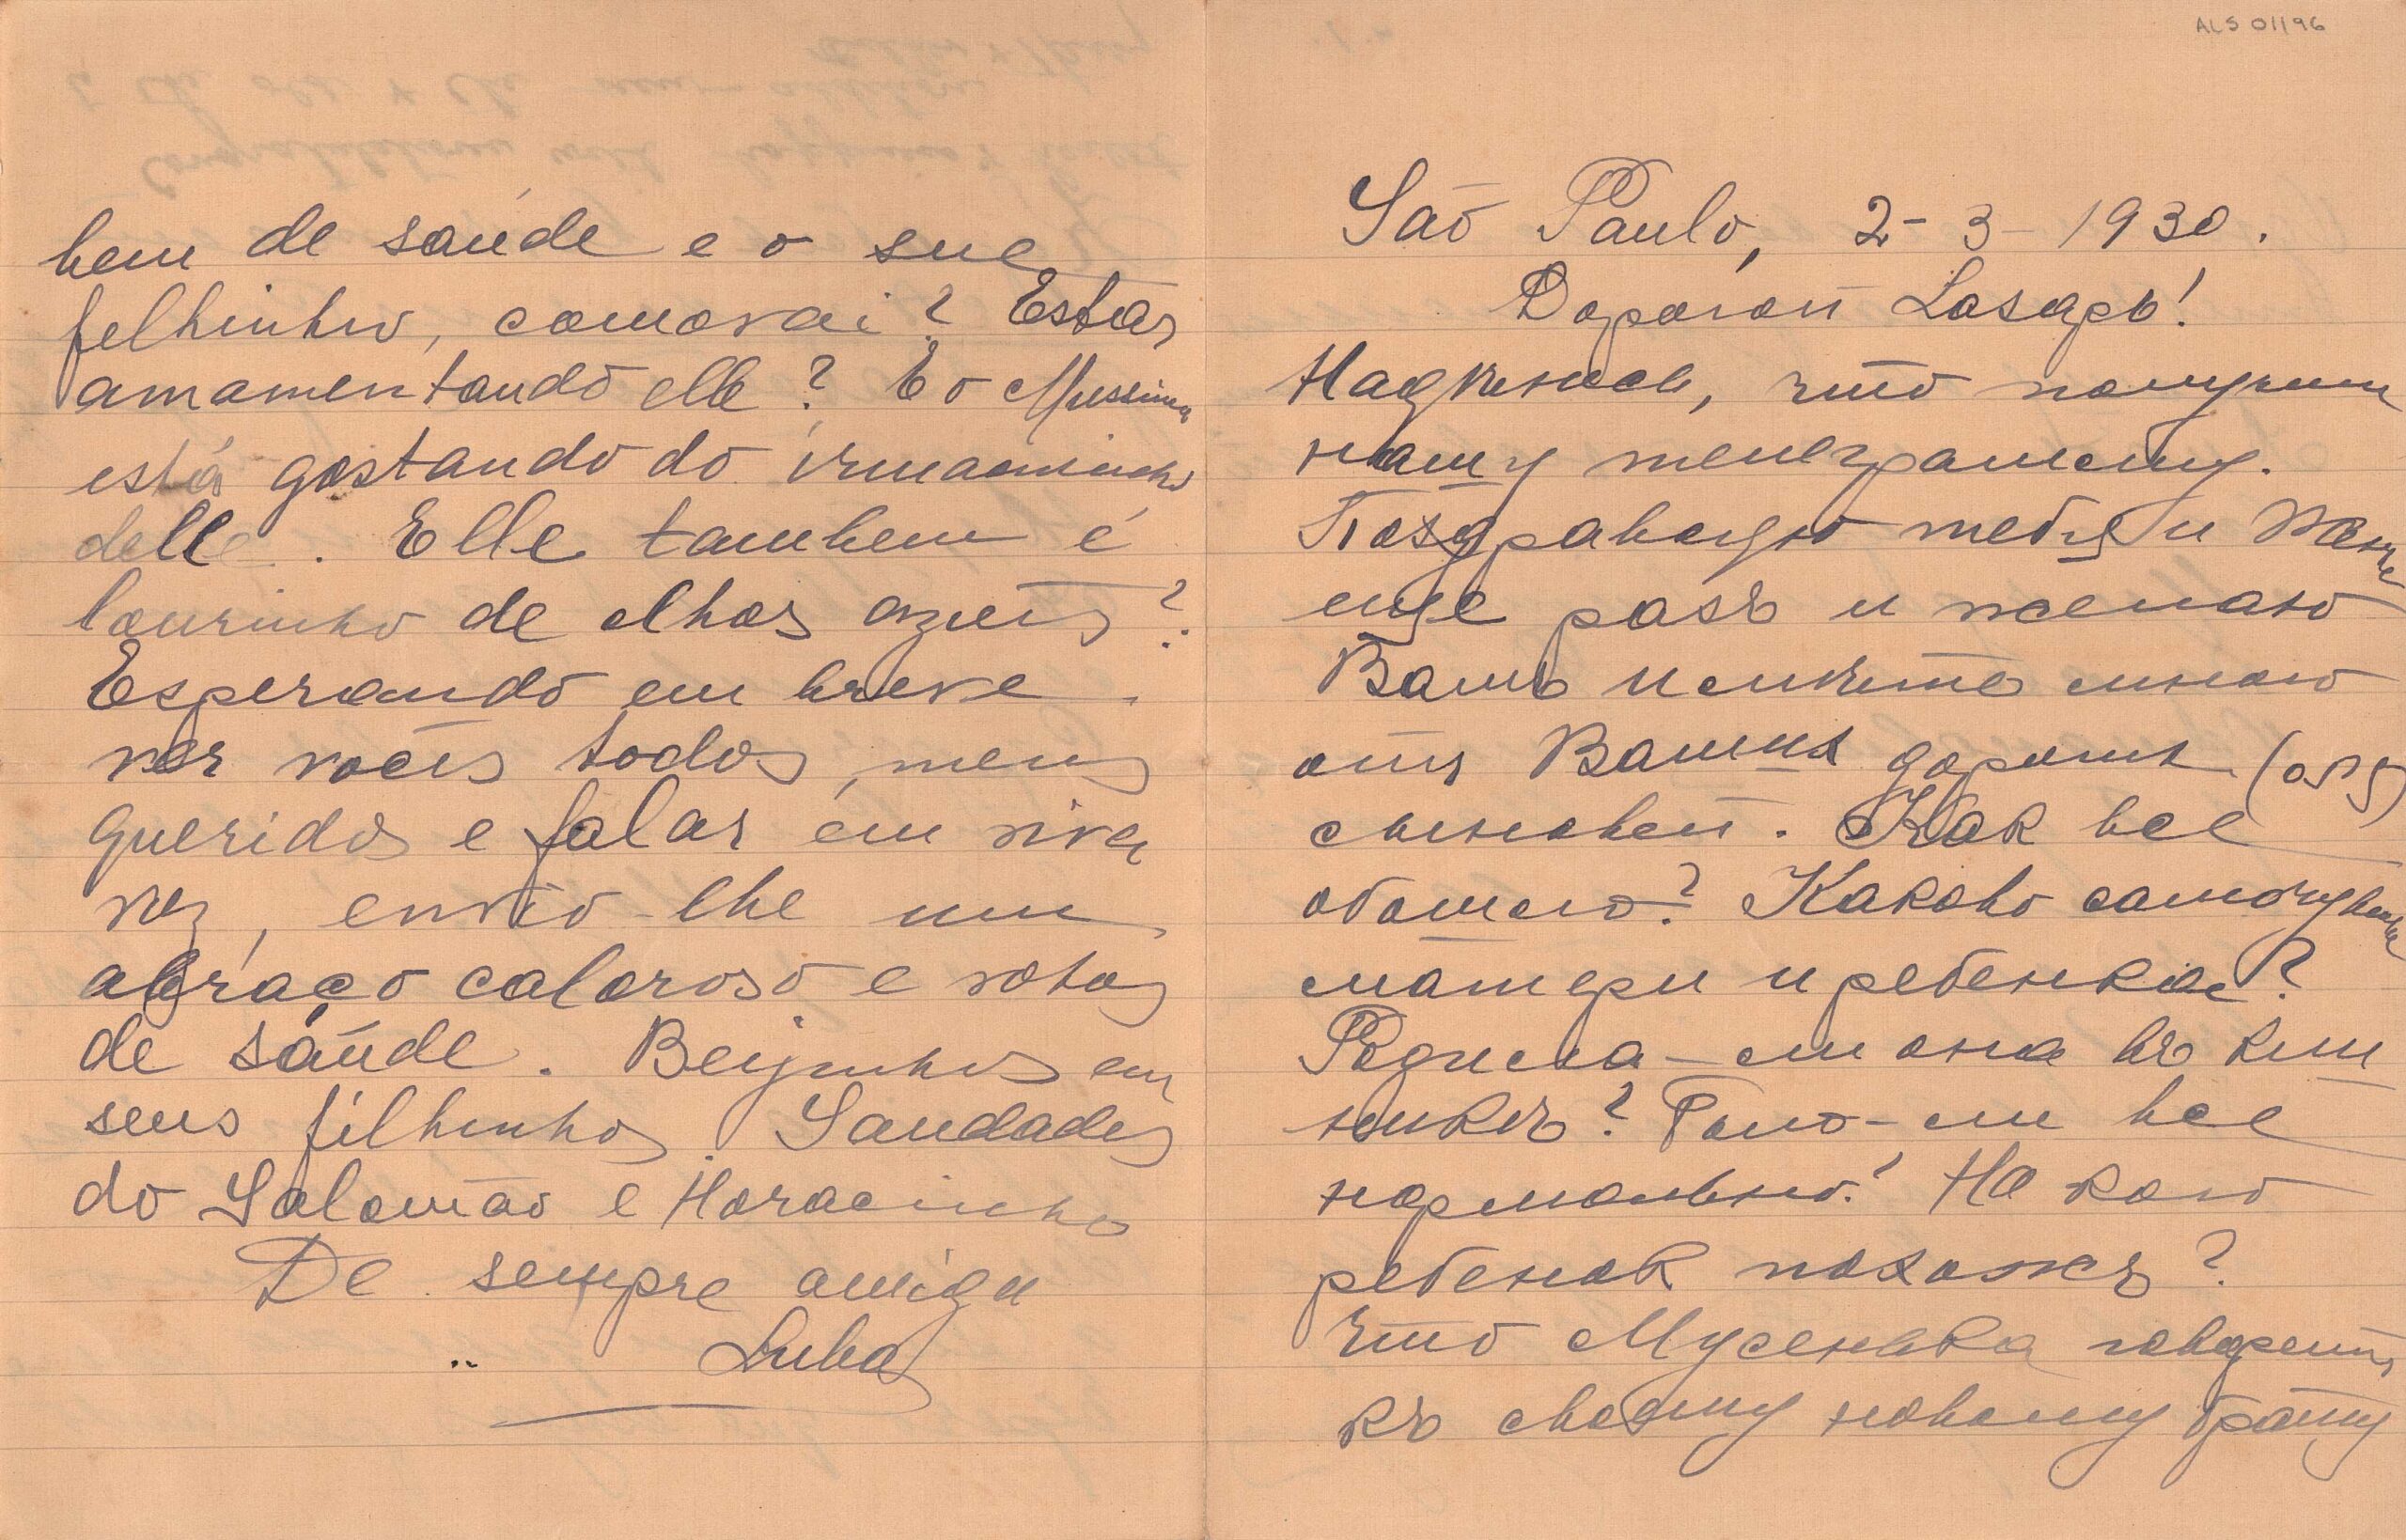 ALS 01196
São Paulo, 2-3-1930.
Дорогой Lasарь!
Надѣюсь, что получили
нашу телеграмму.
Поздравляю тебя и Женю
еще разъ и желаю
Вамъ имѣть много
отъ Ваших дорогих
сыновей. Как все
обошлось? Каково самочувствие
матери и ребенка?
Родила-ли она въ кли
никѣ? Было-ли все
нормально? На кого
ребенок похожъ?
Что Мусенька говоритъ
къ своему новому брату
bem de saúde e o sue
felhinho, comovai? Estas
amamentando elle? E o Mussinka
está gostando do irmaosinho
delle. Elle tambem é
lourinho de olhos azues?
Esperando em breve
ver vocês todos, meus
queridos e falar em viva
voz, envio-lhe um
abraço caloroso e votos
de saúde. Beijinhos em
seus filhinhos. Saudades
do Salomão e Horacinho
De sempre amiga
Luba